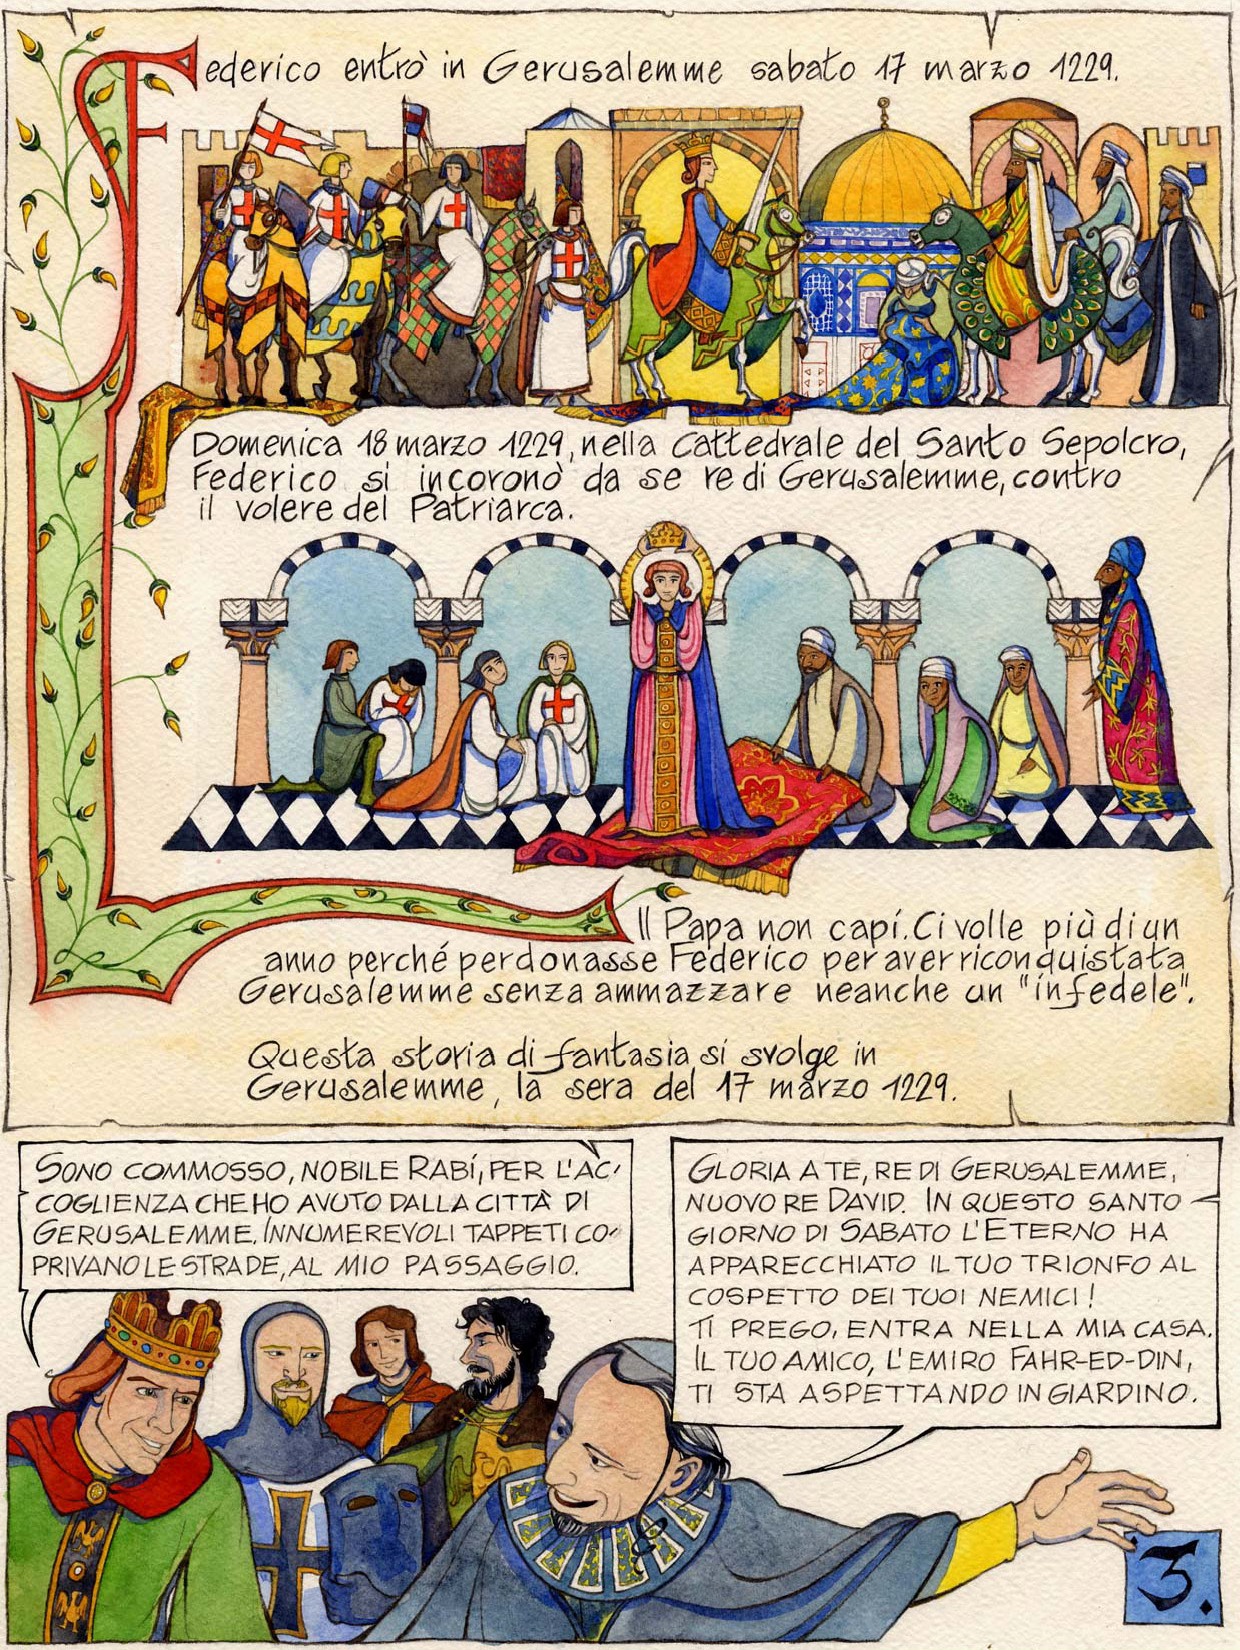 Federico entrò in Gerusalemme sabato 17 marzo 1229.
Domenica 18 marzo 1229, nella Cattedrale del Santo Sepolcro,
Federico si incoronò da se re di Gerusalemme, contro
il volere del Patriarca.
Il Papa non capí. Ci volle più di un
anno perché perdonasse Federico per aver riconquistata
Gerusalemme senza ammazzare neanche un "infedele".
Questa storia di fantasia si svolge in
Gerusalemme, la sera del 17 marzo 1229.
SONO COMMOSSO, NOBILE RABÍ, PER L'AC-
COGLIENZA CHE HO AVUTO DALLA CITTÀ DI
GERUSALEMME. INNUMEREVOLI TAPPETI CO-
PRIVANO LE STRADE, AL MIO PASSAGGIO.
GLORIA A TE, RE DI GERUSALEMME,
NUOVO RE DAVID. IN QUESTO SANTO
GIORNO DI SABATO L'ETERNO HA
APPARECCHIATO IL TUO TRIONFO AL
COSPETTO DEI TUOI NEMICI!
TI PREGO, ENTRA NELLA MIA CASA.
IL TUO AMICO, L'EMIRO FAHR-ED-DIN,
TI STA ASPETTANDO IN GIARDINO.
3.